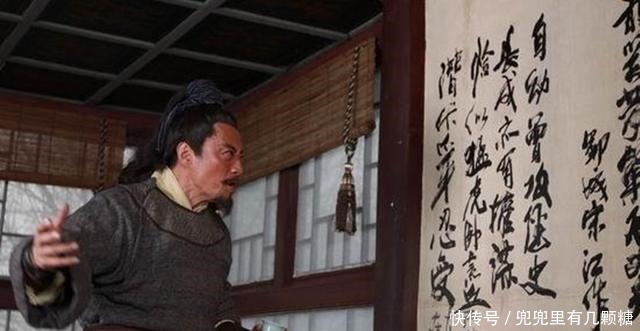 鄆城宋江作
自幼曾攻經史
長成亦有權謀
恰似猛虎卧荒丘
潛伏爪牙忍受
快传号/兜兜里有几颗糖